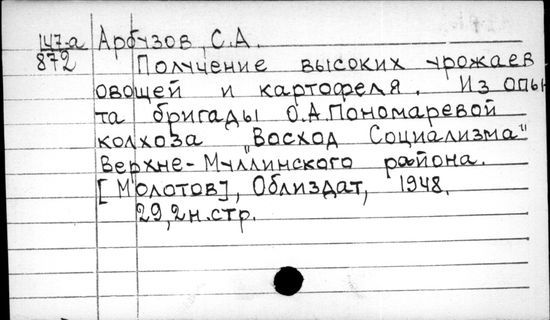 147-а Арбузов, С.А.
872 Получение высоких урожаев
овощей и картофеля. Из опы
та бригады О.А.Пономаревой
колхоза "Восход Социализма"
Верхне-Муллинского района.
[Молотов], Облиздат, 1948.
29,2н.стр.